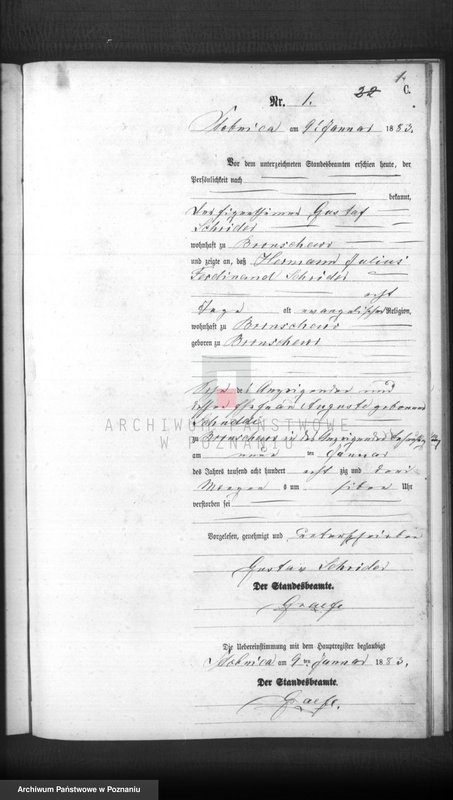 1.
32 C.
Nr. 1.
am 9t Januar 1883.
Vor dem unterzeichneten Standesbeamten erschien heute, der
Persönlichkeit nach
bekannt,
Gustaf
Schrider
wohnhaft zu
und zeigte an, daß Hermann Julius
Ferdinand Schrider
acht
Tage alt evangelischer Religion,
wohnhaft zu
geboren zu
Sohn des Anzeigenden und
Ehefrau Auguste geborenen
zu
am neun ten Januar
des Jahres tausend acht hundert acht zig und drei
Morgens um sieben Uhr
verstorben sei
Vorgelesen, genehmigt und unterschrieben
Gustav Schrider
Der Standesbeamte.
Graefe
Die Uebereinstimmung mit dem Hauptregister beglaubigt
am 9ten Januar 1883.
Der Standesbeamte.
Graefe.
ARCHIWUM PAŃSTWOWE
W POZNANIU
Archiwum Państwowe w Poznaniu